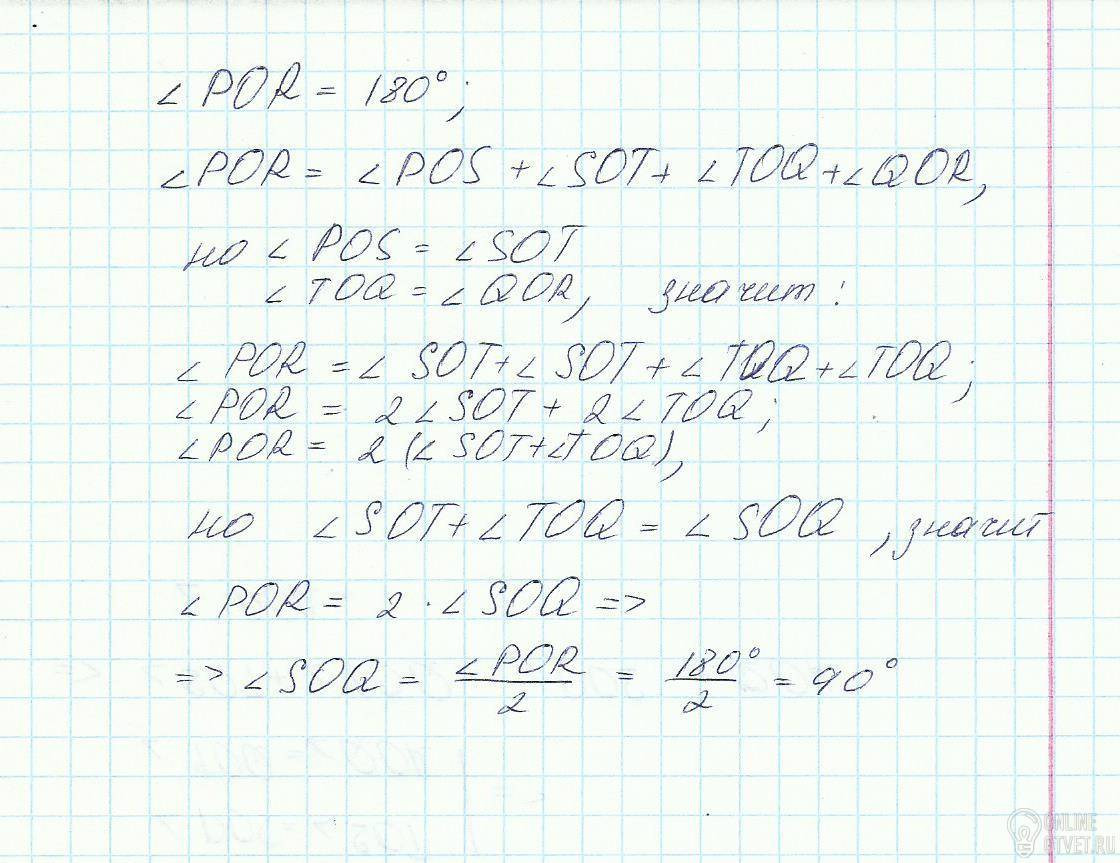 ∠POR = 180°;
∠POR = ∠POS + ∠SOT + ∠TOQ + ∠QOR,
но ∠POS = ∠SOT
∠TOQ = ∠QOR, значит:
∠POR = ∠SOT + ∠SOT + ∠TOQ + ∠TOQ;
∠POR = 2∠SOT + 2∠TOQ;
∠POR = 2(∠SOT + ∠TOQ),
но ∠SOT + ∠TOQ = ∠SOQ, значит
∠POR = 2 · ∠SOQ =>
=> ∠SOQ = ∠POR/2 = 180°/2 = 90°
ONLINE
OTVET.RU